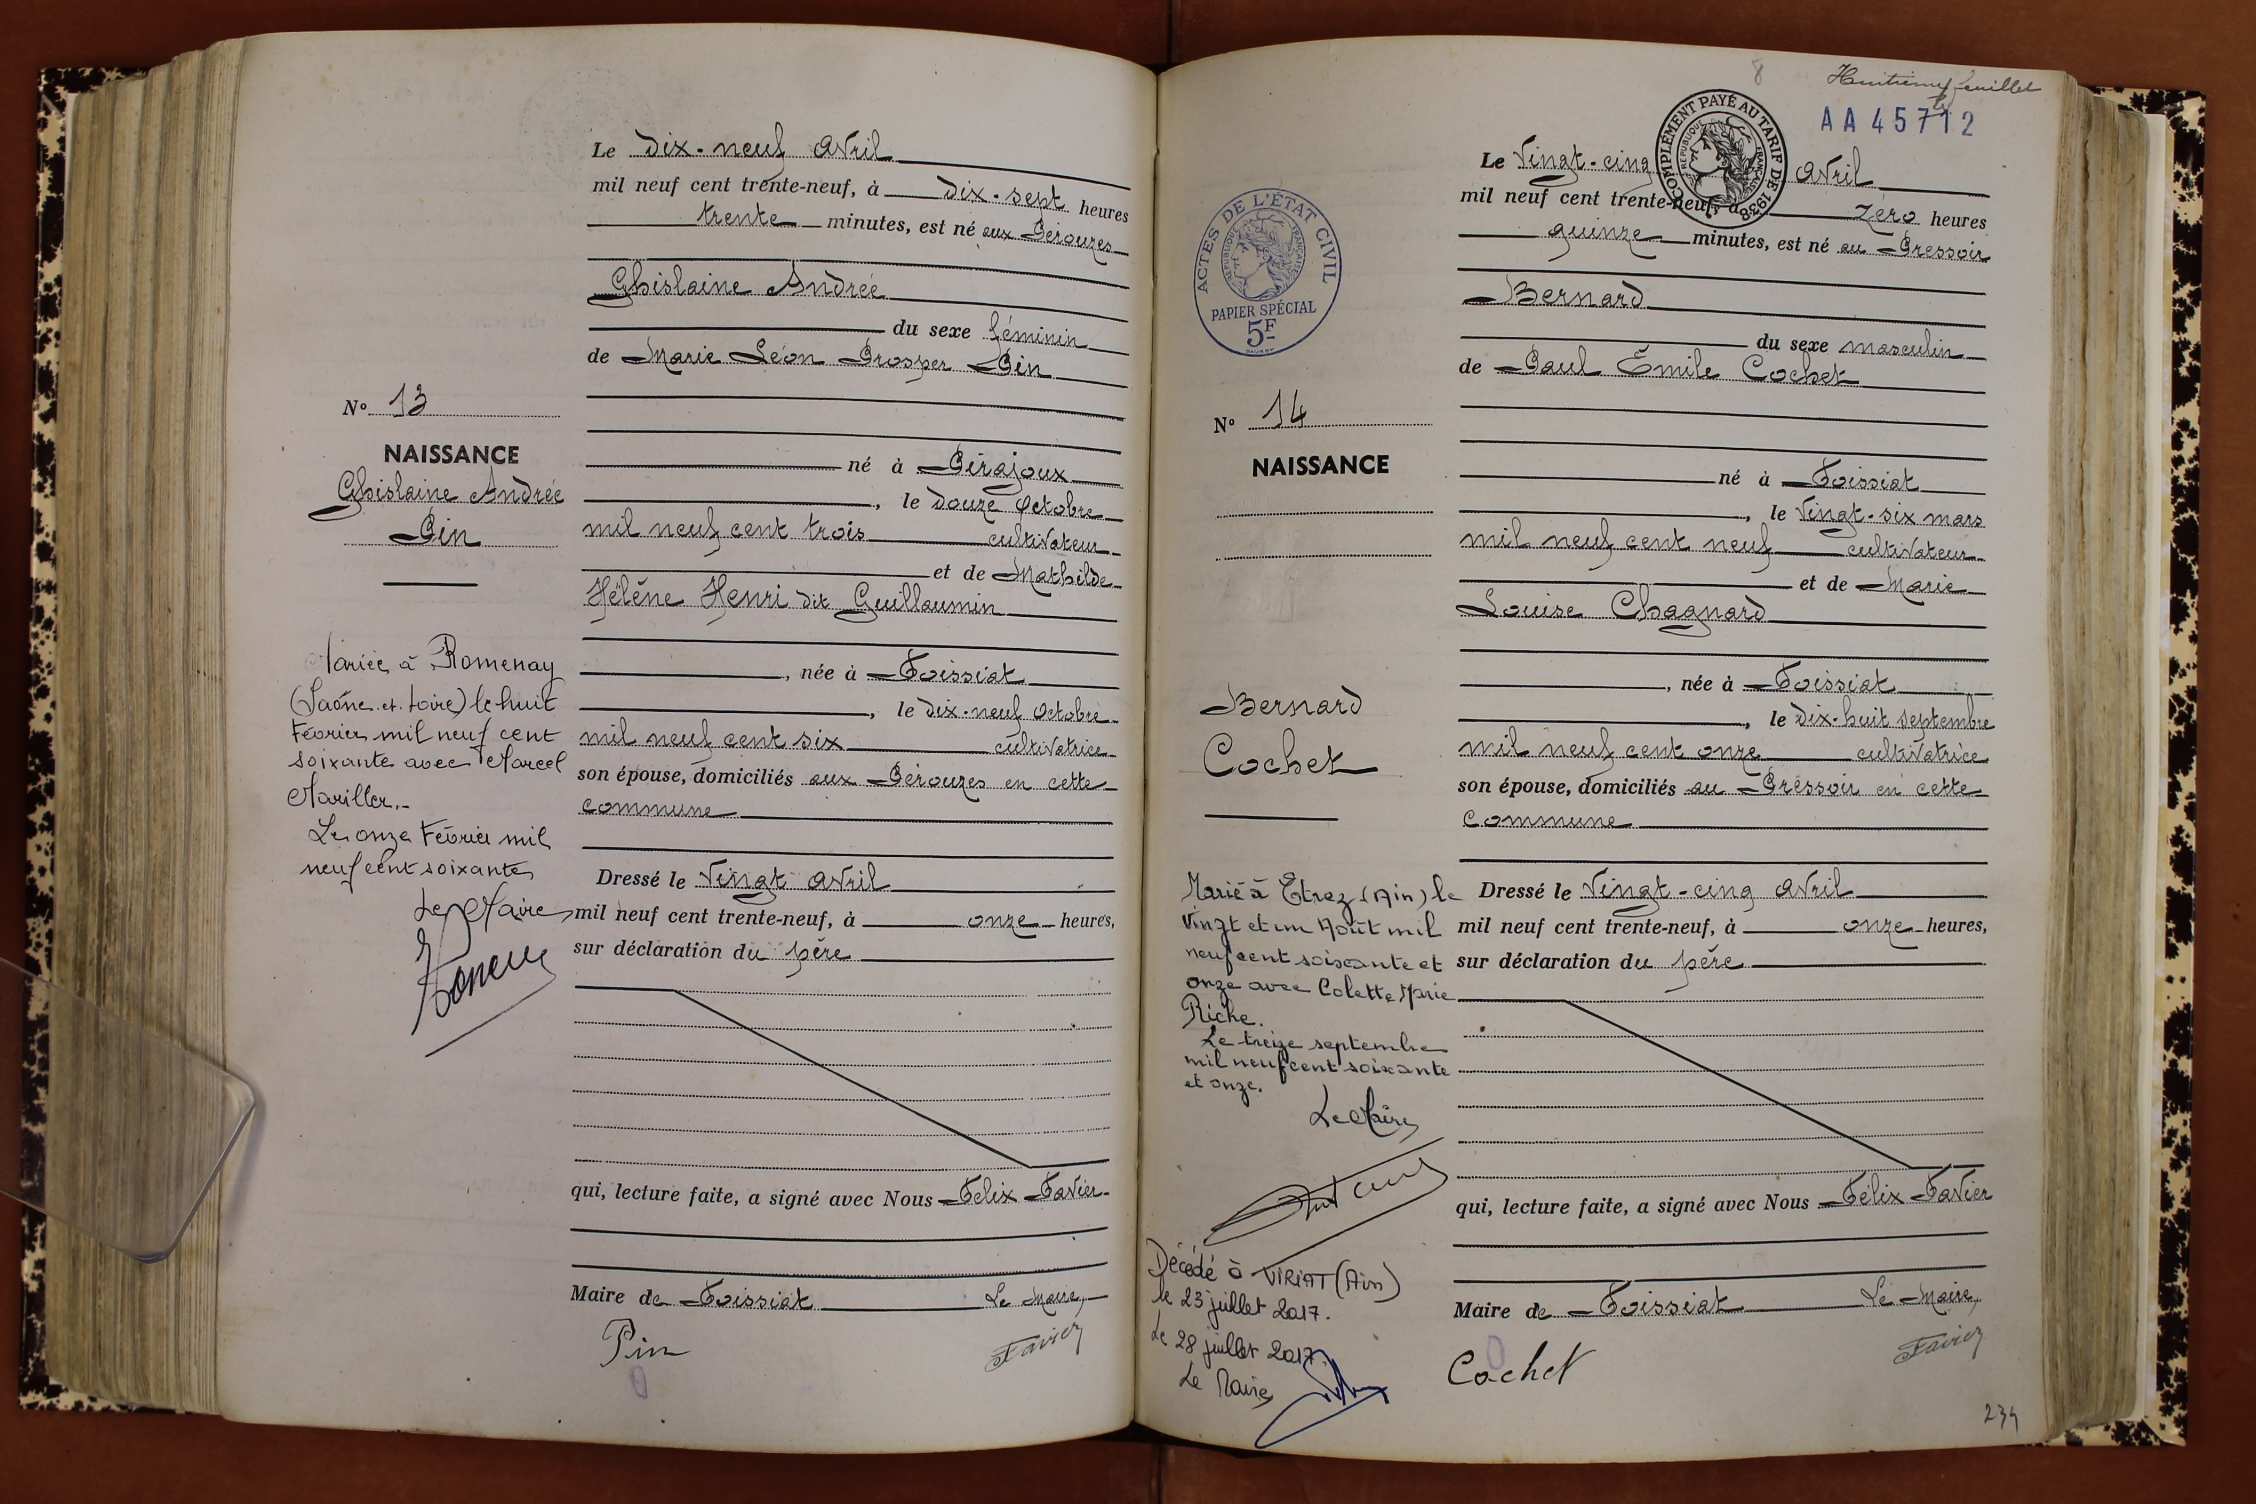 Le dix-neuf Avril
mil neuf cent trente-neuf, à dix-sept heures
trente minutes, est né aux Pérouzes
Ghislaine Andrée
du sexe féminin
de Marie Léon Prosper Pin
né à Pirajoux
, le douze Octobre
mil neuf cent trois cultivateur
et de Mathilde
Hélène Henri dit Guillaumin
, née à Foissiat
, le dix-neuf Octobre
mil neuf cent six cultivatrice
son épouse, domiciliés aux Pérouzes en cette
commune
Dressé le Vingt Avril
mil neuf cent trente-neuf, à onze heures,
sur déclaration du père
qui, lecture faite, a signé avec Nous Félix Favier
Maire de Foissiat Le Maire,
Pin Favier
N° 13
NAISSANCE
Ghislaine Andrée
Pin
Mariée à Romenay
(Saône-et-Loire) le huit
Février mil neuf cent
soixante avec Marcel
Mariller.-
Le onze Février mil
neuf cent soixante
Le Maire
8 Huitième feuillet
AA45712
COMPLÉMENT PAYÉ AU TARIF DE 1938
RÉPUBLIQUE FRANÇAISE
Le Vingt-cinq Avril
mil neuf cent trente-neuf, à zéro heures
quinze minutes, est né au Pressoir
Bernard
du sexe masculin
de Paul Émile Cochet
né à Foissiat
, le Vingt-six mars
mil neuf cent neuf cultivateur
et de Marie
Louise Chagnard
, née à Foissiat
, le dix-huit septembre
mil neuf cent onze cultivatrice
son épouse, domiciliés au Pressoir en cette
commune
Dressé le Vingt-cinq Avril
mil neuf cent trente-neuf, à onze heures,
sur déclaration du père
qui, lecture faite, a signé avec Nous Félix Favier
Maire de Foissiat Le Maire,
Cochet Favier
ACTES DE L'ÉTAT CIVIL
RÉPUBLIQUE FRANÇAISE
PAPIER SPÉCIAL
5F
N° 14
NAISSANCE
Bernard
Cochet
Marié à Etrez (Ain) le
Vingt et un Août mil
neuf cent soixante et
onze avec Colette Marie
Riche.
Le treize septembre
mil neuf cent soixante
et onze.
Le Maire
Décédé à VIRIAT (Ain)
le 23 juillet 2017.
Le 28 juillet 2017.
Le Maire
234